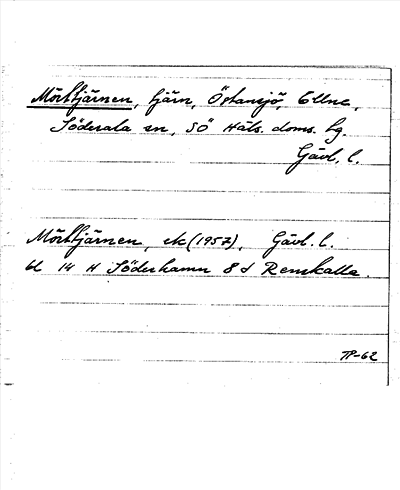 Mörttjärnen, tjärn, Östansjö, Ellne,
Söderala sn, SÖ Häls. doms. tg.
Gävl. l.
Mörttjärnen, ek (1957), Gävl. l.
bl 14 H Söderhamn 8 d Renskalla.
TP-62